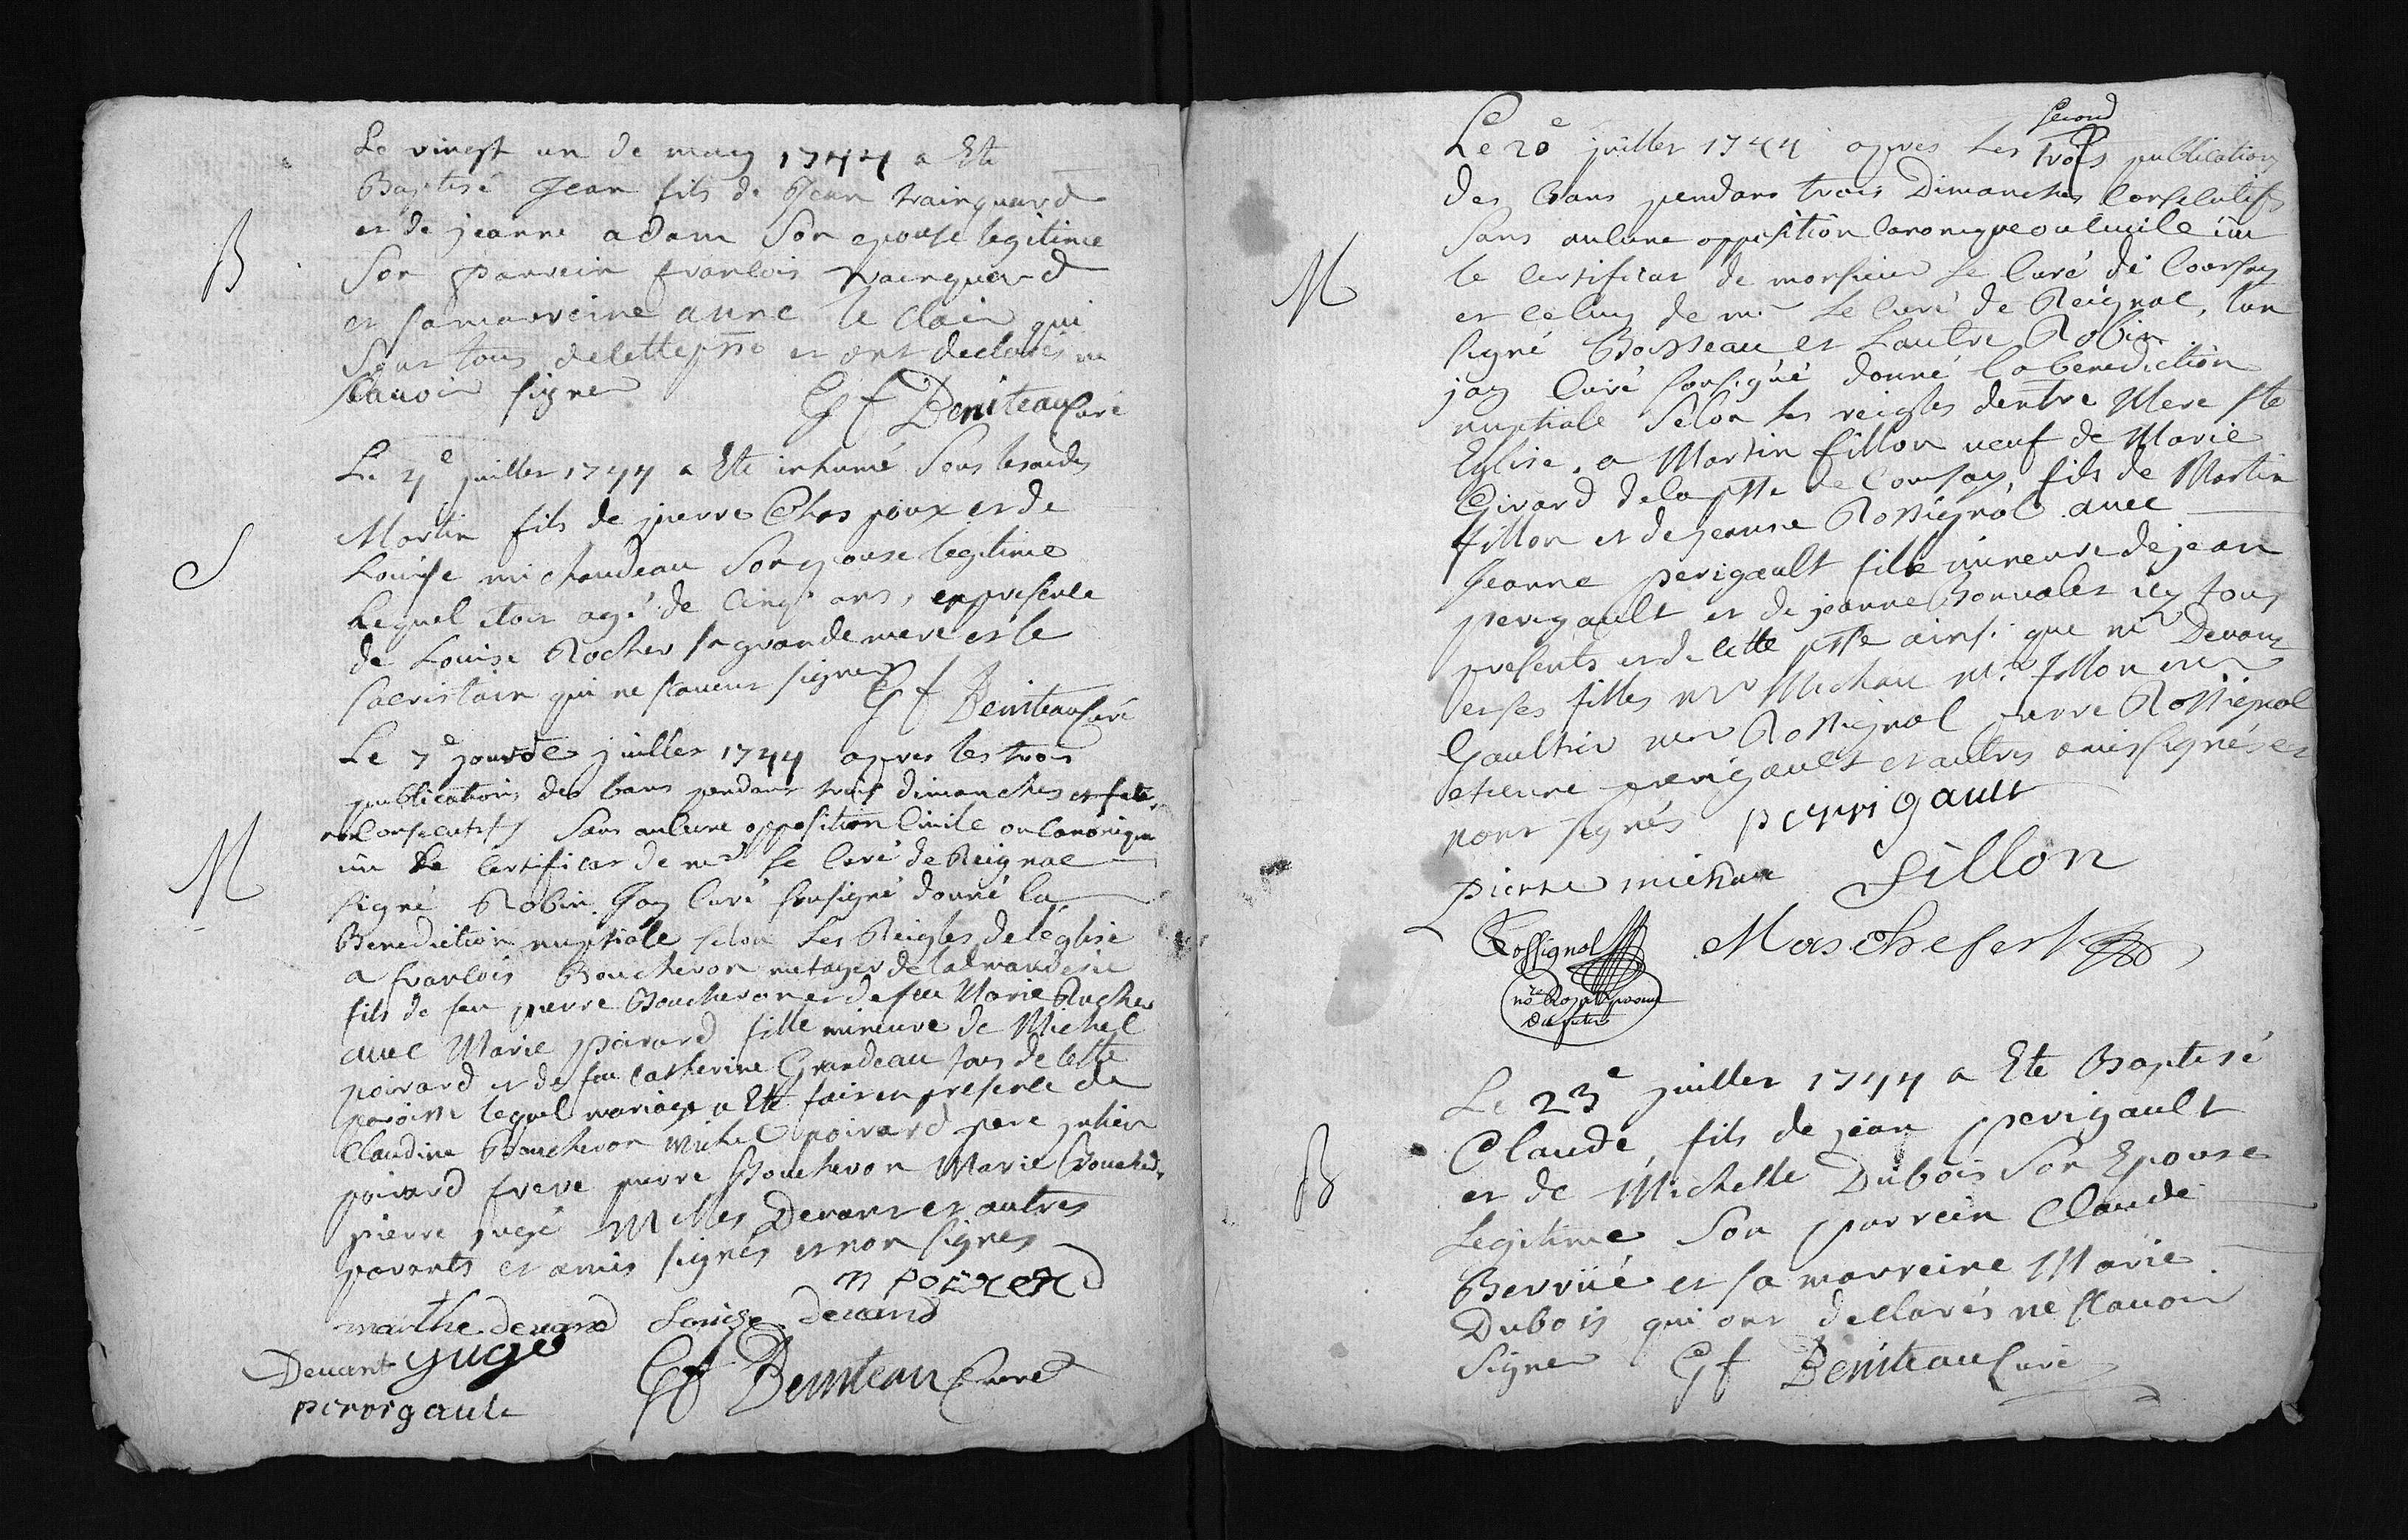 Le vingt un de may 1744 a Ete
Baptisé Jean fils de Jean trainquard
et de jeanne adam Son epouse legitime
Son parrein francois trainquard
et sa marreine anne le clair qui
Sont tous de cette psse et ont declarés ne
scauoir signer
B
G f Beniteau Curé
Le 4e juillet 1744 a Ete inhumé Sous
Martin fils de pierre Chaspoux et de
Louise michaudeau Son epouse legitime
Lequel etoit agé de Cinq ans, en presence
de Louise Rocher sa grande mere et le
sacristain qui ne scauent signer
S
G f Beniteau Curé
Le 7e jour de juillet 1744 apres les trois
publications des bans pendant trois dimanches et fete
consecutifs Sans aucune opposition Ciuile ou Canonique
uü Le certificat de mr le Curé de Reignac
signé Robin. Jay Curé sousigné donné la
Benediction nuptiale selon Les Reigles de l'eglise
M
a francois Boucheron metayer de
fils de feu pierre Boucheron et de feu Marie Rocher
auec Marie poirard fille mineure de Michel
poirard et de feu catherine Grandeau tous de cette
paroisse lequel mariage a Ete fait en presence de
Claudine Boucheron Michel poirard pere julien
poirard frere pierre Boucheron Marie Boucher
pierre jugé Melles Deuant et autres
parants et amis signés et non signes
m poirerd
marthe deuand Louise deuand
Deuant juge
perrigault
G f Beniteau Curé
Le 20e juillet 1744 apres Les trois publication
second
des bans pendant trois Dimanches Consecutifs
Sans aucune opposition Canonique ou Ciuile uü
le certificat de monsieur Le Curé de Coursay
et celuy de mr Le Curé de Reignac, lun
signé Boisseau et Lautre Robin
jay Curé sousigné donné la benediction
nuptiale Selon les reigles de ntre Mere Ste
Eglise. a Martin fillon ueuf de Marie
Girard de la psse de Coursay, fils de Martin
fillon et de jeanne Rossignol auec
Jeanne perigault fille mineure de jean
perigault et de jeanne Bonualet icy tous
presents et de cette psse ainsi que mr Deuant
et ses filles mr Michau mr fillon mr
Gaultier mr Rossignol pierre Rossignol
etienne perigault et autres amis signés et
non signés
M
perrigault
pierre michau fillon
Rossignol Maschefert
Le 23e juillet 1744 a Ete Baptisé
Claude, fils de jean perigault
et de Michelle Dubois Son Epouse
Legitime Son parrein Claude
Berrüé et sa marreine Marie
Dubois qui ont declarés ne scauoir
Signer G f Beniteau Curé
B